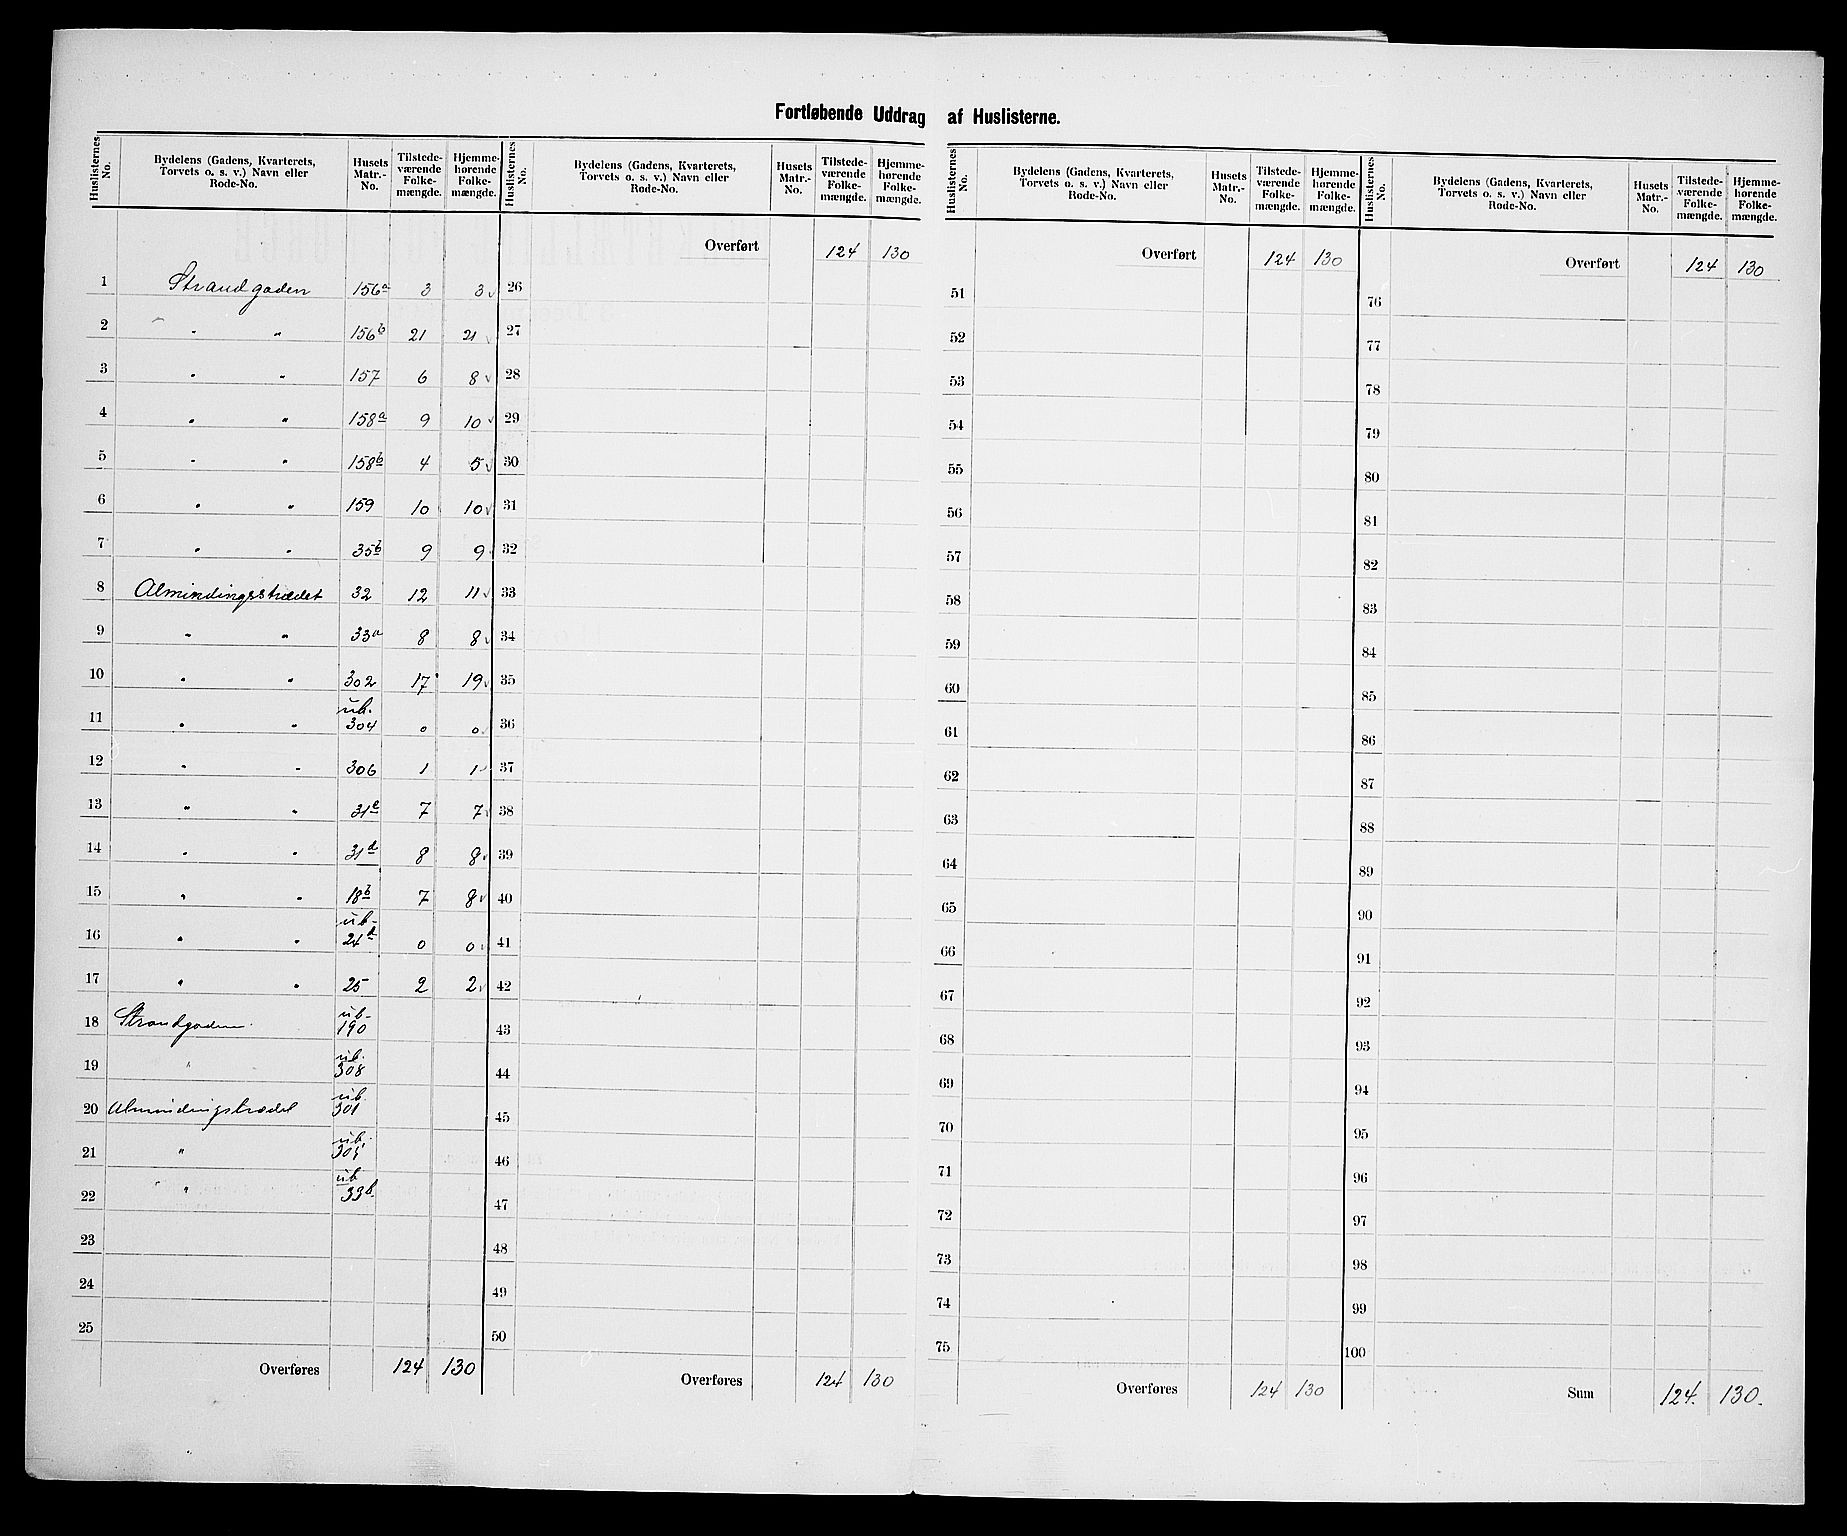 Fortløbende Uddrag af Huslisterne.
Huslisternes No. | Bydelens (Gadens, Kvarterets, Torvets o. s. v.) Navn eller Rode-No. | Husets Matr.-No. | Tilstede-værende Folke-mængde. | Hjemme-hørende Folke-mængde.
1 Strandgaden 156a 3 3
2 " " 156b 21 21
3 " " 157 6 8
4 " " 158a 9 10
5 " " 158b 4 5
6 " " 159 10 10
7 " " 35b 9 9
8 Almindingsstrædet 32 12 11
9 " " 33a 8 8
10 " " 302 17 19
11 " " ub. 304 0 0
12 " " 306 1 1
13 " " 31e 7 7
14 " " 31d 8 8
15 " " 18b 7 8
16 " " ub- 24d 0 0
17 " " 25 2 2
18 Strandgaden ub- 190
19 " ub. 308
20 Almindingstrædet ub. 301
21 " ub. 305
22 " ub 33b
23
24
25
Overføres 124 130
Huslisternes No. | Bydelens (Gadens, Kvarterets, Torvets o. s. v.) Navn eller Rode-No. | Husets Matr.-No. | Tilstede-værende Folke-mængde. | Hjemme-hørende Folke-mængde.
Overført 124 130
26
27
28
29
30
31
32
33
34
35
36
37
38
39
40
41
42
43
44
45
46
47
48
49
50
Overføres 124 130
Huslisternes No. | Bydelens (Gadens, Kvarterets, Torvets o. s. v.) Navn eller Rode-No. | Husets Matr.-No. | Tilstede-værende Folke-mængde. | Hjemme-hørende Folke-mængde.
Overført 124 130
51
52
53
54
55
56
57
58
59
60
61
62
63
64
65
66
67
68
69
70
71
72
73
74
75
Overføres 124 130
Huslisternes No. | Bydelens (Gadens, Kvarterets, Torvets o. s. v.) Navn eller Rode-No. | Husets Matr.-No. | Tilstede-værende Folke-mængde. | Hjemme-hørende Folke-mængde.
Overført 124 130
76
77
78
79
80
81
82
83
84
85
86
87
88
89
90
91
92
93
94
95
96
97
98
99
100
Sum 124. 130.